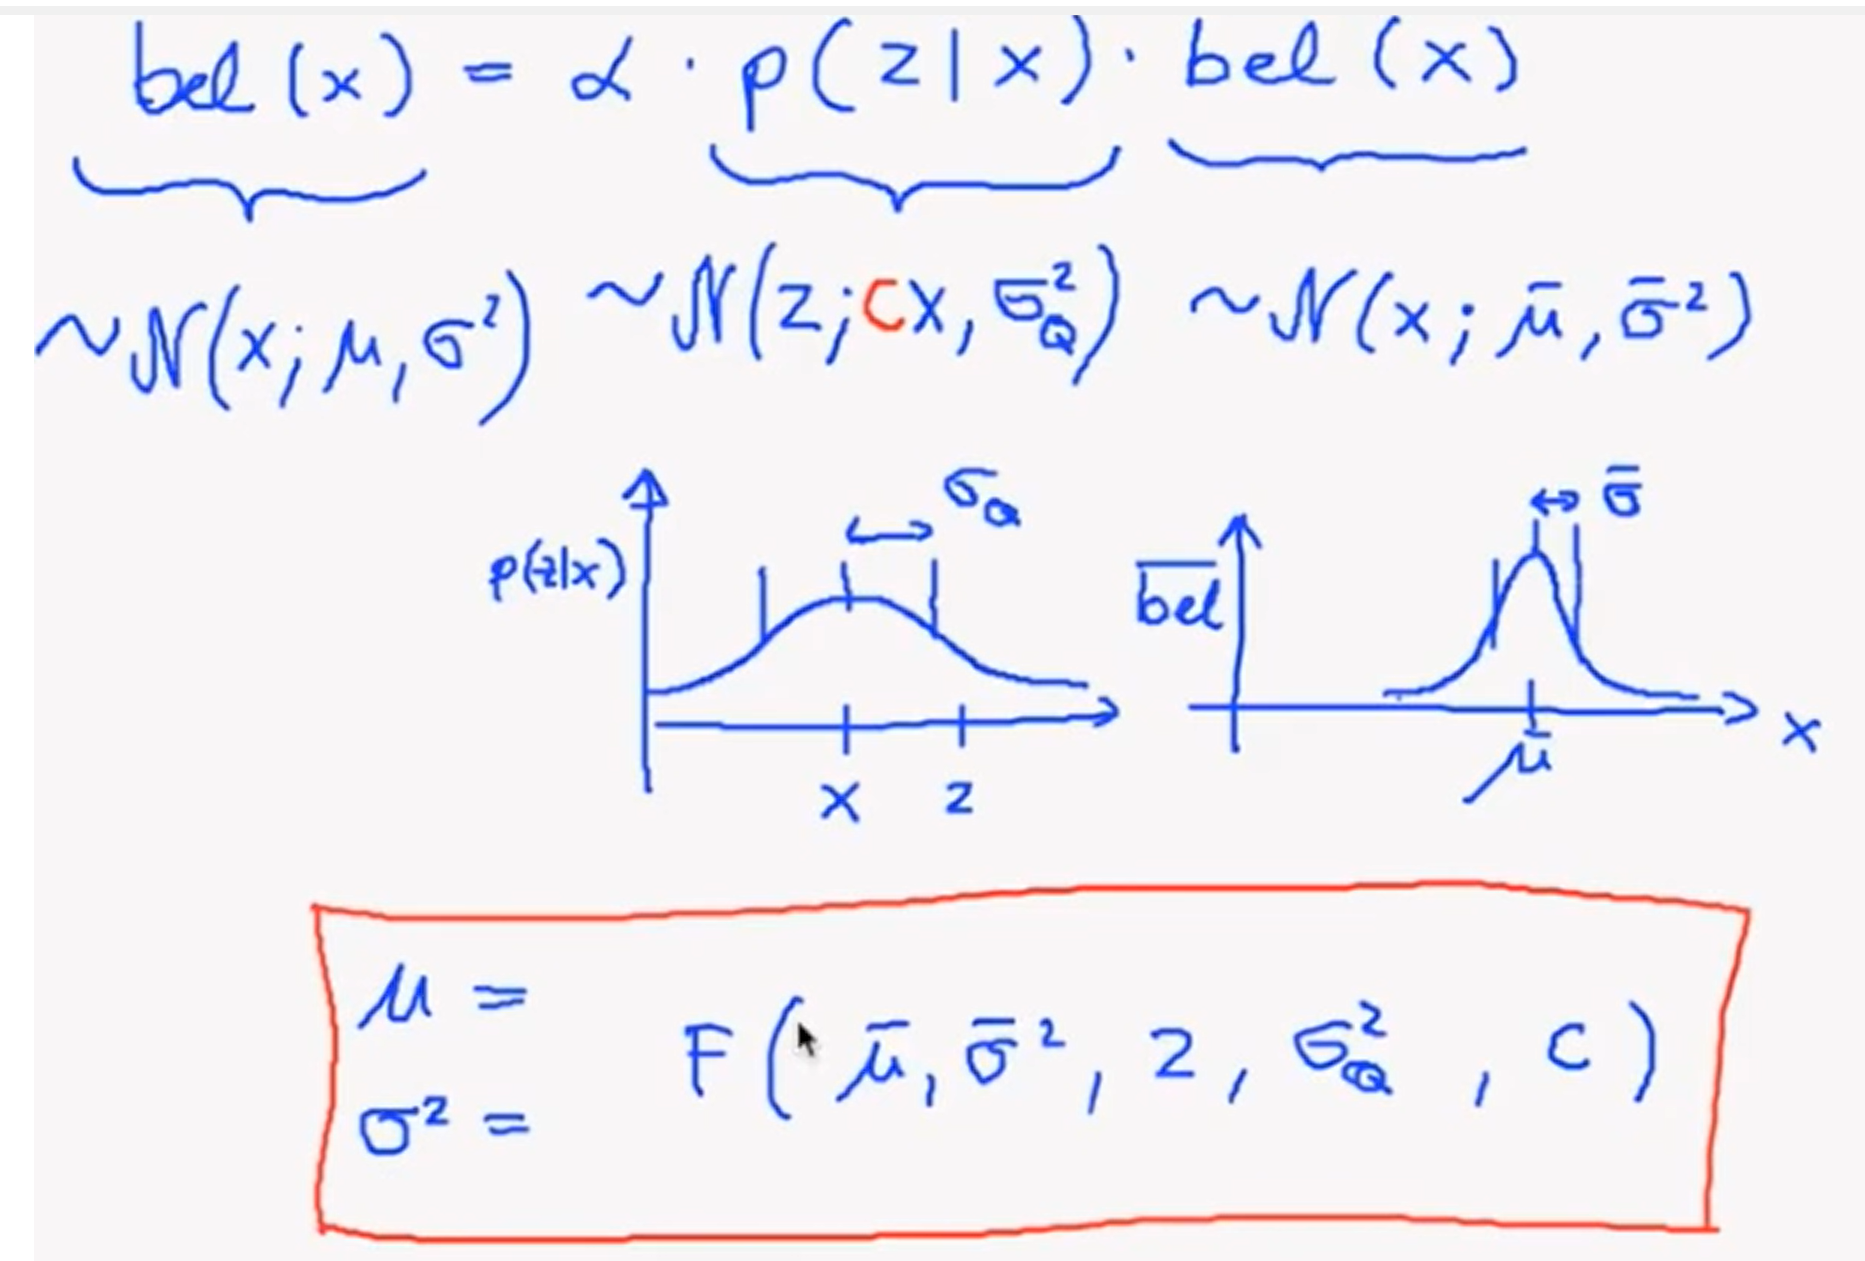 bel (x) = α · p(z|x) · bel (x)
~N(x; μ, σ²) ~N(z; cx, σ_Q²) ~N(x; μ̄, σ̄²)
σ_Q σ̄
p(z|x) b̅e̅l̅
x z μ̄ x
μ =
F( μ̄, σ̄², z, σ_Q², c )
σ² =